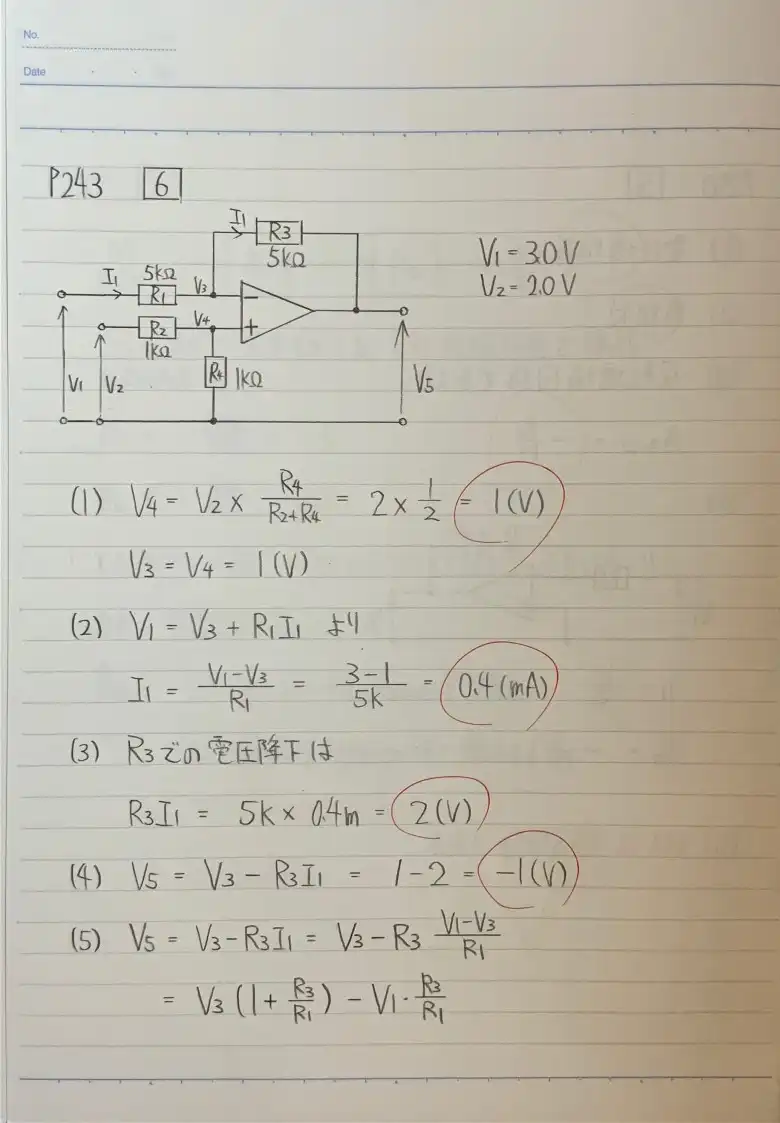 No.
Date
P243 6
I₁ R3
5kΩ
I₁ 5kΩ R₁ V₃ −
R₂ V₄ +
1kΩ
R₄ 1kΩ
V₁ V₂ V₅
V₁ = 3.0 V
V₂ = 2.0 V
(1) V₄ = V₂ × R₄/(R₂+R₄) = 2 × 1/2 = 1(V)
V₃ = V₄ = 1(V)
(2) V₁ = V₃ + R₁I₁ より
I₁ = (V₁−V₃)/R₁ = (3−1)/5k = 0.4(mA)
(3) R₃での電圧降下は
R₃I₁ = 5k × 0.4m = 2(V)
(4) V₅ = V₃ − R₃I₁ = 1−2 = −1(V)
(5) V₅ = V₃−R₃I₁ = V₃−R₃ (V₁−V₃)/R₁
= V₃(1+R₃/R₁) − V₁·R₃/R₁